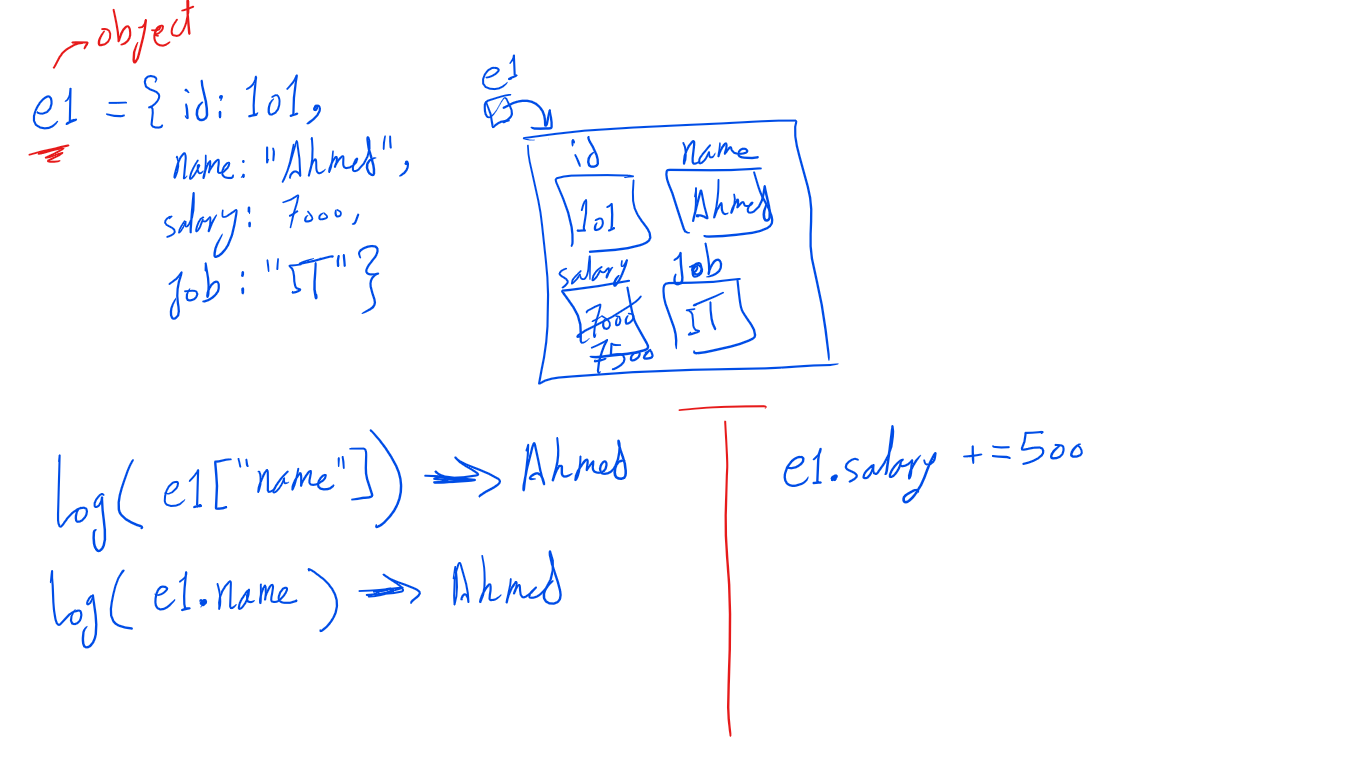 object
e1 = { id: 101,
name: "Ahmed",
salary: 7000,
job : "IT" }
e1
id name
101 Ahmed
salary job
7000 IT
7500
log( e1["name"]) → Ahmed
log( e1.name ) → Ahmed
e1.salary += 500